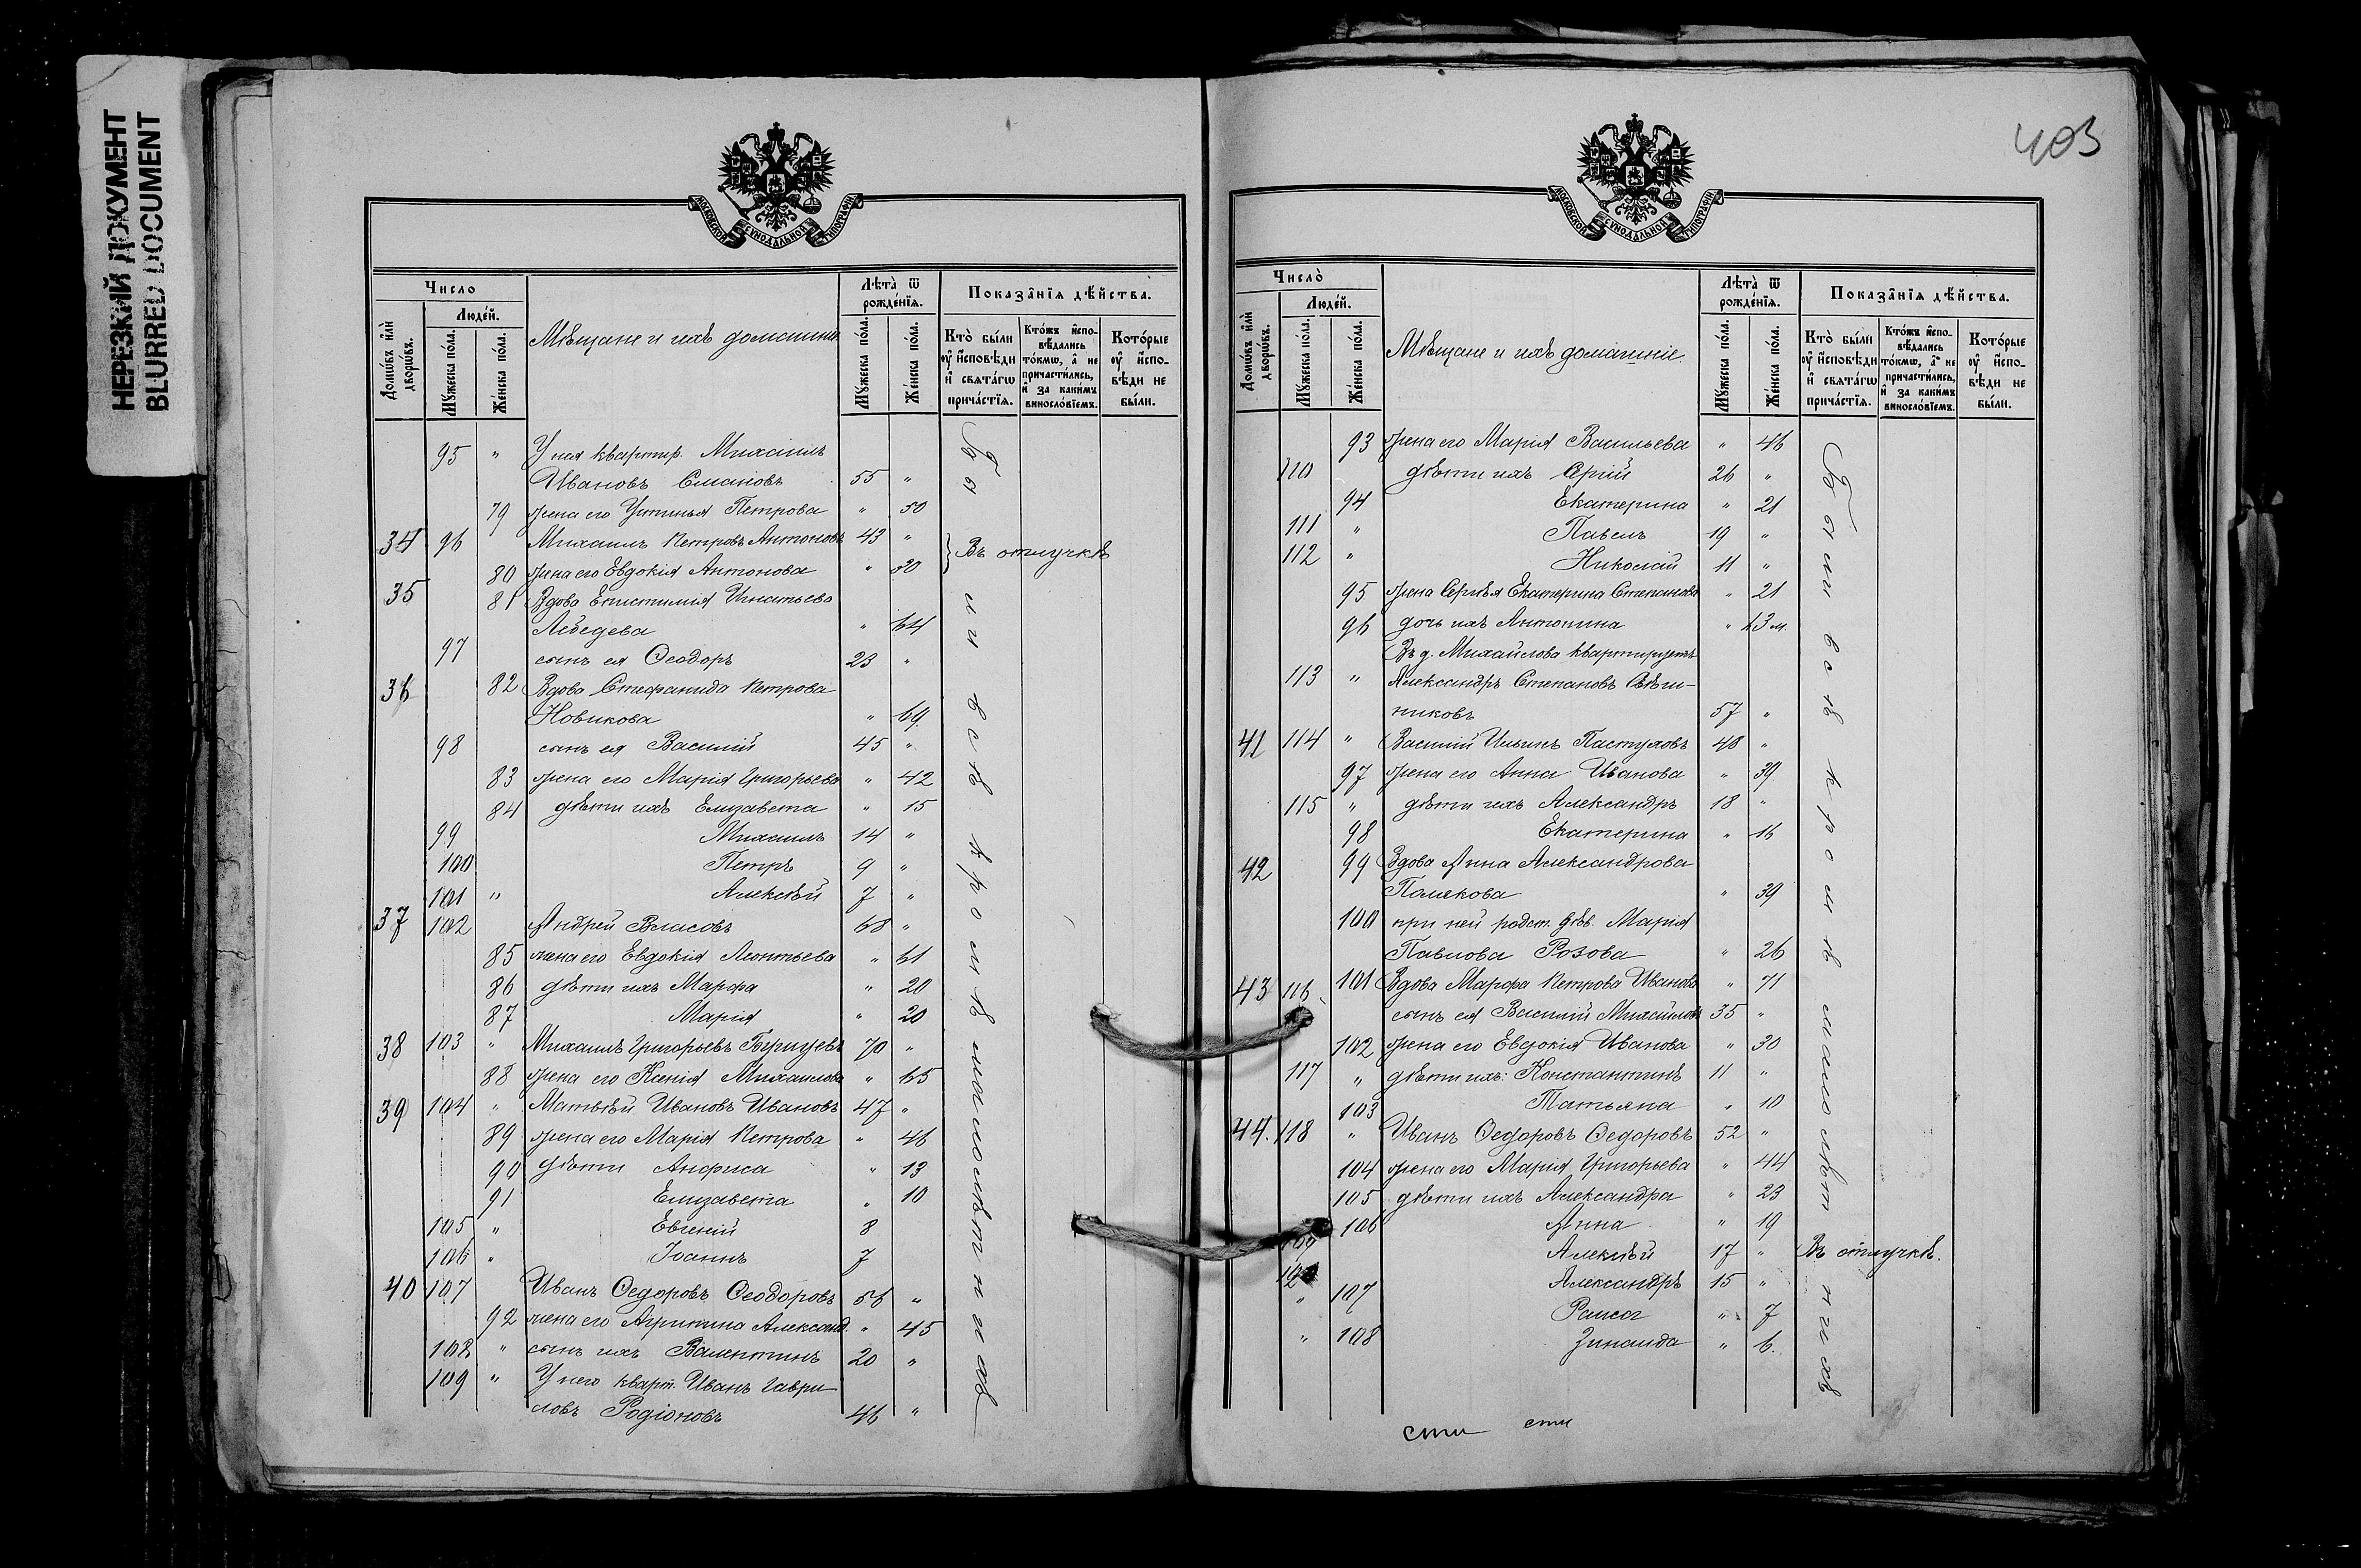 НЕРЕЗКИЙ ДОКУМЕНТ
BLURRED DOCUMENT
МОСКОВСКОЙ СѴНОДАЛЬНОЙ ТИПОГРАФІИ
Число
Домѡ́въ и҆лѝ дворѡ́въ.
Люде́й.
Мꙋ́жеска по́ла.
Же́нска по́ла.
Мѣщане и ихъ домашніе
Лѣ́та ѿ рожде́нїѧ.
Мꙋ́жеска по́ла.
Же́нска по́ла.
Показа̑нїѧ дѣ́йства.
Кто̀ бы́ли ᲂу҆ и҆сповѣ́ди и҆ свѧта́гѡ прича́стїѧ.
Кто́жъ и҆сповѣ́дались то́кмѡ, а҆ не причасти́лись, и҆ за каки́мъ винословїемъ.
Кото́рые ᲂу҆ и҆сповѣ́ди не бы́ли.
95 " У нея квартир. Михаилъ
Ивановъ 55 "
79 жена его Устинья Петрова " 50
34 96 Михаилъ Петровъ Антоновъ 43 "
80 жена его Евдокія Антонова " 30
Въ отлучкѣ
35 81 Вдова Епистимія Игнатьева
Лебедева " 64
97 сынъ ея Ѳеодоръ 23 "
36 82 Вдова Стефанида Петрова
Новикова " 69.
98 сынъ ея Василій 45 "
83 жена его Марія Григорьева " 42
84 дѣти ихъ Елизавета " 15
99 Михаилъ 14 "
100 Петръ 9 "
101 " Алексѣй 7 "
37 102 Андрей Власовъ 68 "
85 жена его Евдокія Леонтьева " 61
86 дѣти ихъ Марфа " 20
87 Марія " 20
38 103 " Михаилъ Григорьевъ 70 "
88 жена его Ксенія Михаилова " 65
39 104 " Матвѣй Ивановъ Ивановъ 47 "
89 жена его Марія Петрова " 46
90 дѣти Анфиса " 13
91 Елизавета " 10
105 " Евгеній 8
106 " Іоаннъ 7
40 107 Иванъ Ѳедоровъ Ѳеодоровъ 56 "
92 жена его Агрипина Александ. " 45
108 " сынъ ихъ Валентинъ 20 "
109 " У него кварт. Иванъ Гаври
ловъ Родіоновъ 46 "
Были всѣ кромѣ малолѣтнихъ
403
МОСКОВСКОЙ СѴНОДАЛЬНОЙ ТИПОГРАФІИ
Число̀
Домѡ́въ и҆лѝ дворѡ́въ.
Люде́й.
Мꙋ́жеска по́ла.
Же́нска по́ла.
Мѣщане и ихъ домашніе
Лѣ́та ѿ рожде́нїѧ.
Мꙋ́жеска по́ла.
Же́нска по́ла.
Показа̑нїѧ дѣ́йства.
Кто̀ бы́ли ᲂу҆ и҆сповѣ́ди и҆ свѧта́гѡ прича́стїѧ.
Кто́жъ и҆сповѣ́дались то́кмѡ, а҆ не причасти́лись, и҆ за каки́мъ винословїемъ.
Кото́рые ᲂу҆ и҆сповѣ́ди не бы́ли.
93 жена его Марія Васильева " 46
110 дѣти ихъ Сергій 26 "
94 Екатерина " 21
111 " Павелъ 19 "
112 " Николай 11 "
95 жена Сергѣя Екатерина Степанова " 21
96 дочь ихъ Антонина " 3 м.
Въ д. Михайлова квартируетъ
113 " Александръ Степановъ
никовъ 57 "
41 114 " Василій Ильинъ Пастуховъ 48 "
97 жена его Анна Иванова " 39
115 " дѣти ихъ Александръ 18 "
98 Екатерина " 16
42 99 Вдова Анна Александрова
Полякова " 39
100 при ней родст. дѣв. Марія
Павлова Розова " 26
43 116 101 Вдова Марфа Петрова Иванова " 71
сынъ ея Василій Михайловъ 35 "
102 жена его Евдокія Иванова " 30
117 " дѣти ихъ: Константинъ 11 "
103 Татьяна " 10
44. 118 " Иванъ Ѳедоровъ Ѳедоровъ 52 "
104 жена его Марія Григорьева " 44
105 дѣти ихъ Александра " 23
106 Анна " 19
Алексѣй 17 " Въ отлучкѣ.
Александръ 15 "
" 107 Раиса " 7
" 108 Зинаида " 6.
Были всѣ кромѣ малолѣтнихъ
сти сти